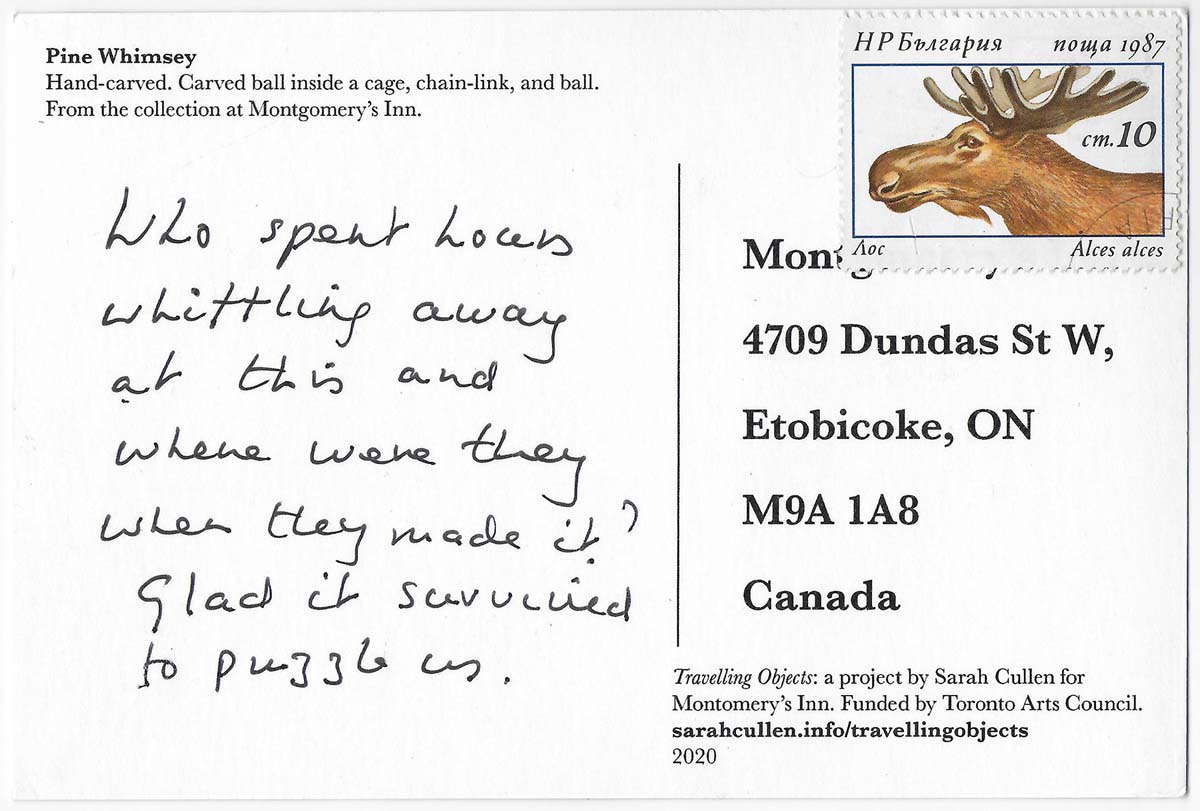 Pine Whimsey
Hand-carved. Carved ball inside a cage, chain-link, and ball.
From the collection at Montgomery's Inn.
Who spent hours
whittling away
at this and
where were they
when they made it?
Glad it survived
to puzzle us.
НР България поща 1987
ст. 10
Лос Alces alces
4709 Dundas St W,
Etobicoke, ON
M9A 1A8
Canada
Travelling Objects: a project by Sarah Cullen for
Montomery's Inn. Funded by Toronto Arts Council.
sarahcullen.info/travellingobjects
2020